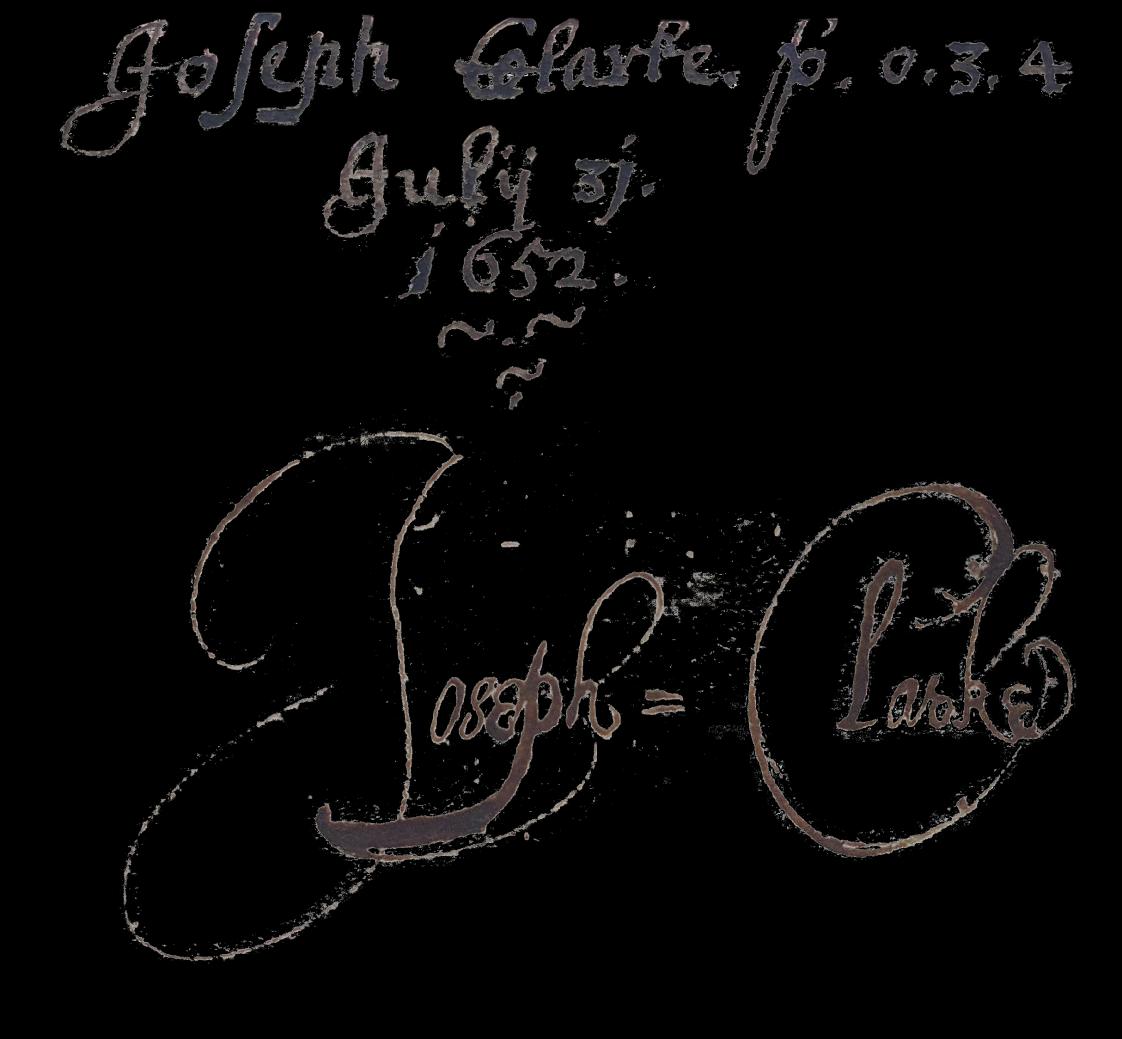 Joseph Clarke. p. 0.3.4
Julij 3j.
1652.
Joseph = Clarke